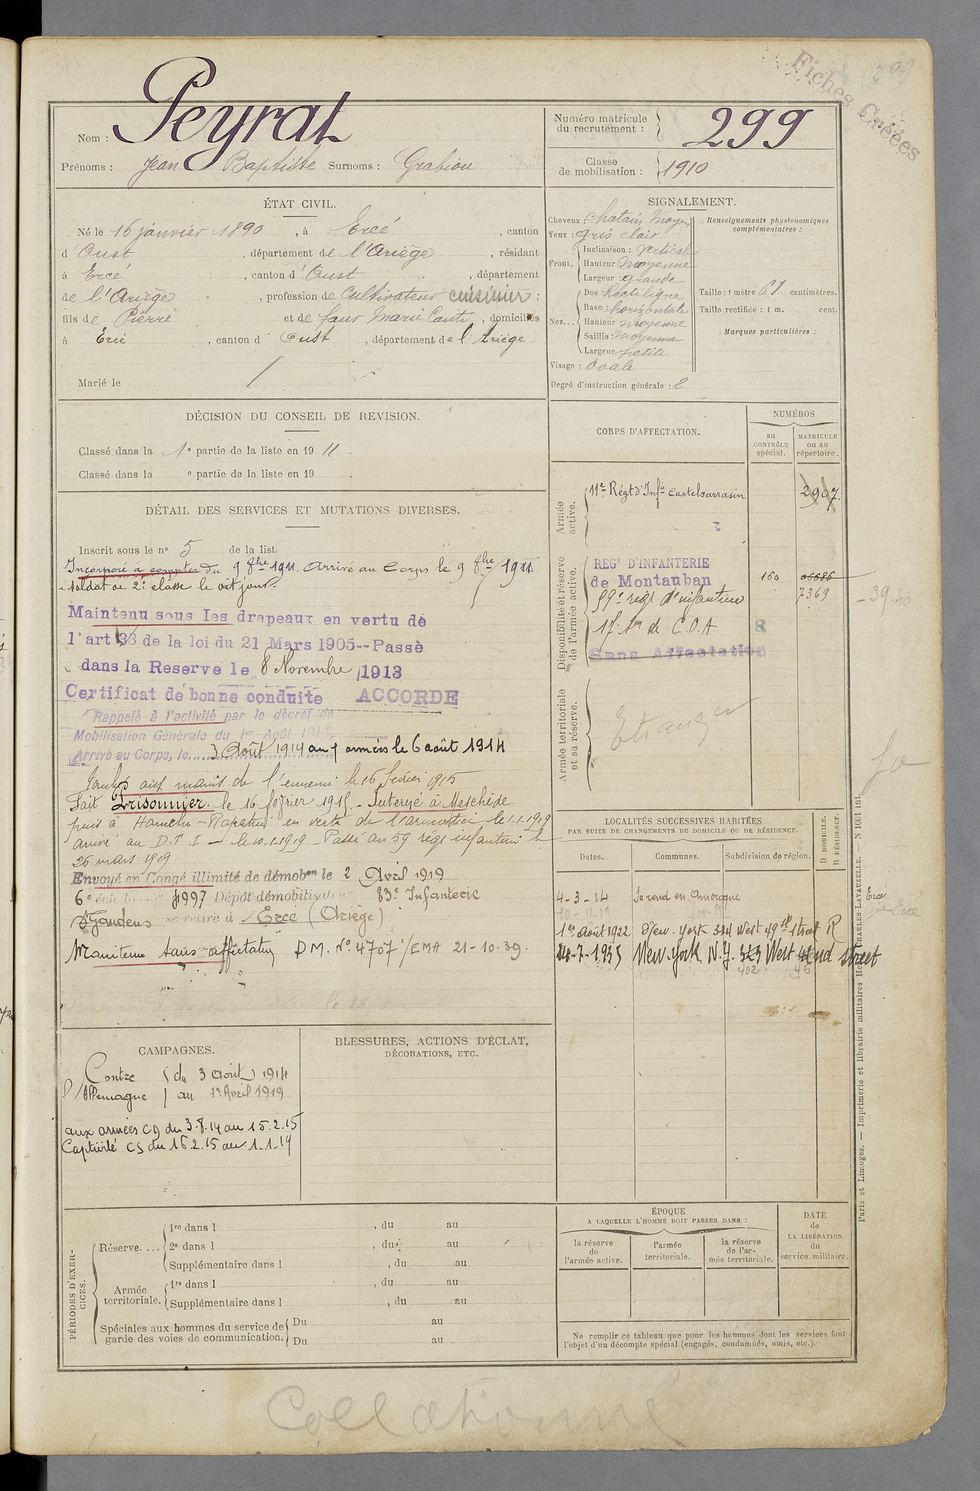 Fiches Créées
299
Nom : Peyrat
Prénoms : Jean Baptiste Surnoms : Grabiou
Numéro matricule du recrutement : 299
Classe de mobilisation : 1910
ÉTAT CIVIL.
Né le 16 janvier 1890, à Ercé, canton
d'Oust, département de l'Ariège, résidant
à Ercé, canton d'Oust, département
de l'Ariège, profession de cultivateur cuisinier ;
fils de Pierre et de faur Marie, domiciliés
à Ercé, canton d'Oust, département de l'Ariège
Marié le /
SIGNALEMENT.
Cheveux : chatain moyen
Yeux : gris clair
Front. Inclinaison : verticale
Hauteur : moyenne
Largeur : grande
Nez... Dos : Rectiligne
Base : horizontale
Hauteur : moyenne
Saillie : moyenne
Largeur : petite
Visage : Ovale
Degré d'instruction générale : 2
Renseignements physionomiques complémentaires :
Taille : 1 mètre 61 centimètres.
Taille rectifiée : 1 m. cent.
Marques particulières :
DÉCISION DU CONSEIL DE REVISION.
Classé dans la 1e partie de la liste en 1911.
Classé dans la e partie de la liste en 19 .
DÉTAIL DES SERVICES ET MUTATIONS DIVERSES.
Inscrit sous le no 5 de la list
Incorporé à compter du 9 8bre 1911. Arrivé au Corps le 9 8bre 1911.
Soldat de 2e classe le dit jour.
Maintenu sous les drapeaux en vertu de
l'art 33 de la loi du 21 Mars 1905--Passé
dans la Reserve le 8 Novembre 1913
Certificat de bonne conduite ACCORDE
Rappelé à l'activité par le décret de
Mobilisation Générale du 1er Août 1914,
Arrivé au Corps, le 3 Août 1914 aux armées le 6 août 1914
Tombé aux mains de l'ennemi le 16 février 1915
Fait Prisonnier. le 16 février 1915. Interné à Meschède
puis à Hameln - Rapatrié en vertu de l'armistice le 1.1.1919
arrivé au D.T.I - le 10.1.1919 - Passé au 59 régt infanterie le
26 mars 1919
Envoyé en Congé illimité de démobon le 2 Avril 1919
6e 4997 Dépôt démobilisateur 83e Infanterie
St Gaudens se retire à Ercé (Ariège)
Maintenu sans affectation D.M. No 4707 /EMA 21-10-39.
CORPS D'AFFECTATION.
NUMÉROS
au CONTRÔLE spécial.
MATRICULE ou au répertoire.
Armée active.
11e Régt d'Infie Castelsarrasin 2907
Disponibilité et réserve de l'armée active.
REGt D'INFANTERIE
de Montauban 160 06686
59e régt d'infanterie 7369
17e Son de C.O.A
Sans Affectation
Armée territoriale et sa réserve.
Etranger
LOCALITÉS SUCCESSIVES HABITÉES
PAR SUITE DE CHANGEMENTS DE DOMICILE OU DE RÉSIDENCE.
Dates. Communes. Subdivision de région. D DOMICILE. R RÉSIDENCE.
4-3-14 Se rend en Amérique
1er Août 1922 New-York 344 West 49th Street R
24-7-1935 New-York N.Y. 343 West 42nd street
402 46
CAMPAGNES.
Contre l'Allemagne du 3 Août 1914
au 1er Avril 1919
aux armées CD du 3.8.14 au 15.2.15
Captivité CS du 16.2.15 au 1-1-19
BLESSURES, ACTIONS D'ÉCLAT,
DÉCORATIONS, ETC.
PÉRIODES D'EXERCICES.
Réserve.... 1re dans l , du au
2e dans l , du au
Supplémentaire dans l , du au
Armée territoriale. 1re dans l , du au
Supplémentaire dans l , du au
Spéciales aux hommes du service de garde des voies de communication. Du au
Du au
ÉPOQUE
A LAQUELLE L'HOMME DOIT PASSER DANS :
la réserve de l'armée active.
l'armée territoriale.
la réserve de l'armée territoriale.
DATE de LA LIBÉRATION du service militaire.
Ne remplir ce tableau que pour les hommes dont les services font
l'objet d'un décompte spécial (engagés, condamnés, omis, etc.).
Paris et Limoges. — Imprimerie et librairie militaires Henri CHARLES-LAVAUZELLE.
Collationné